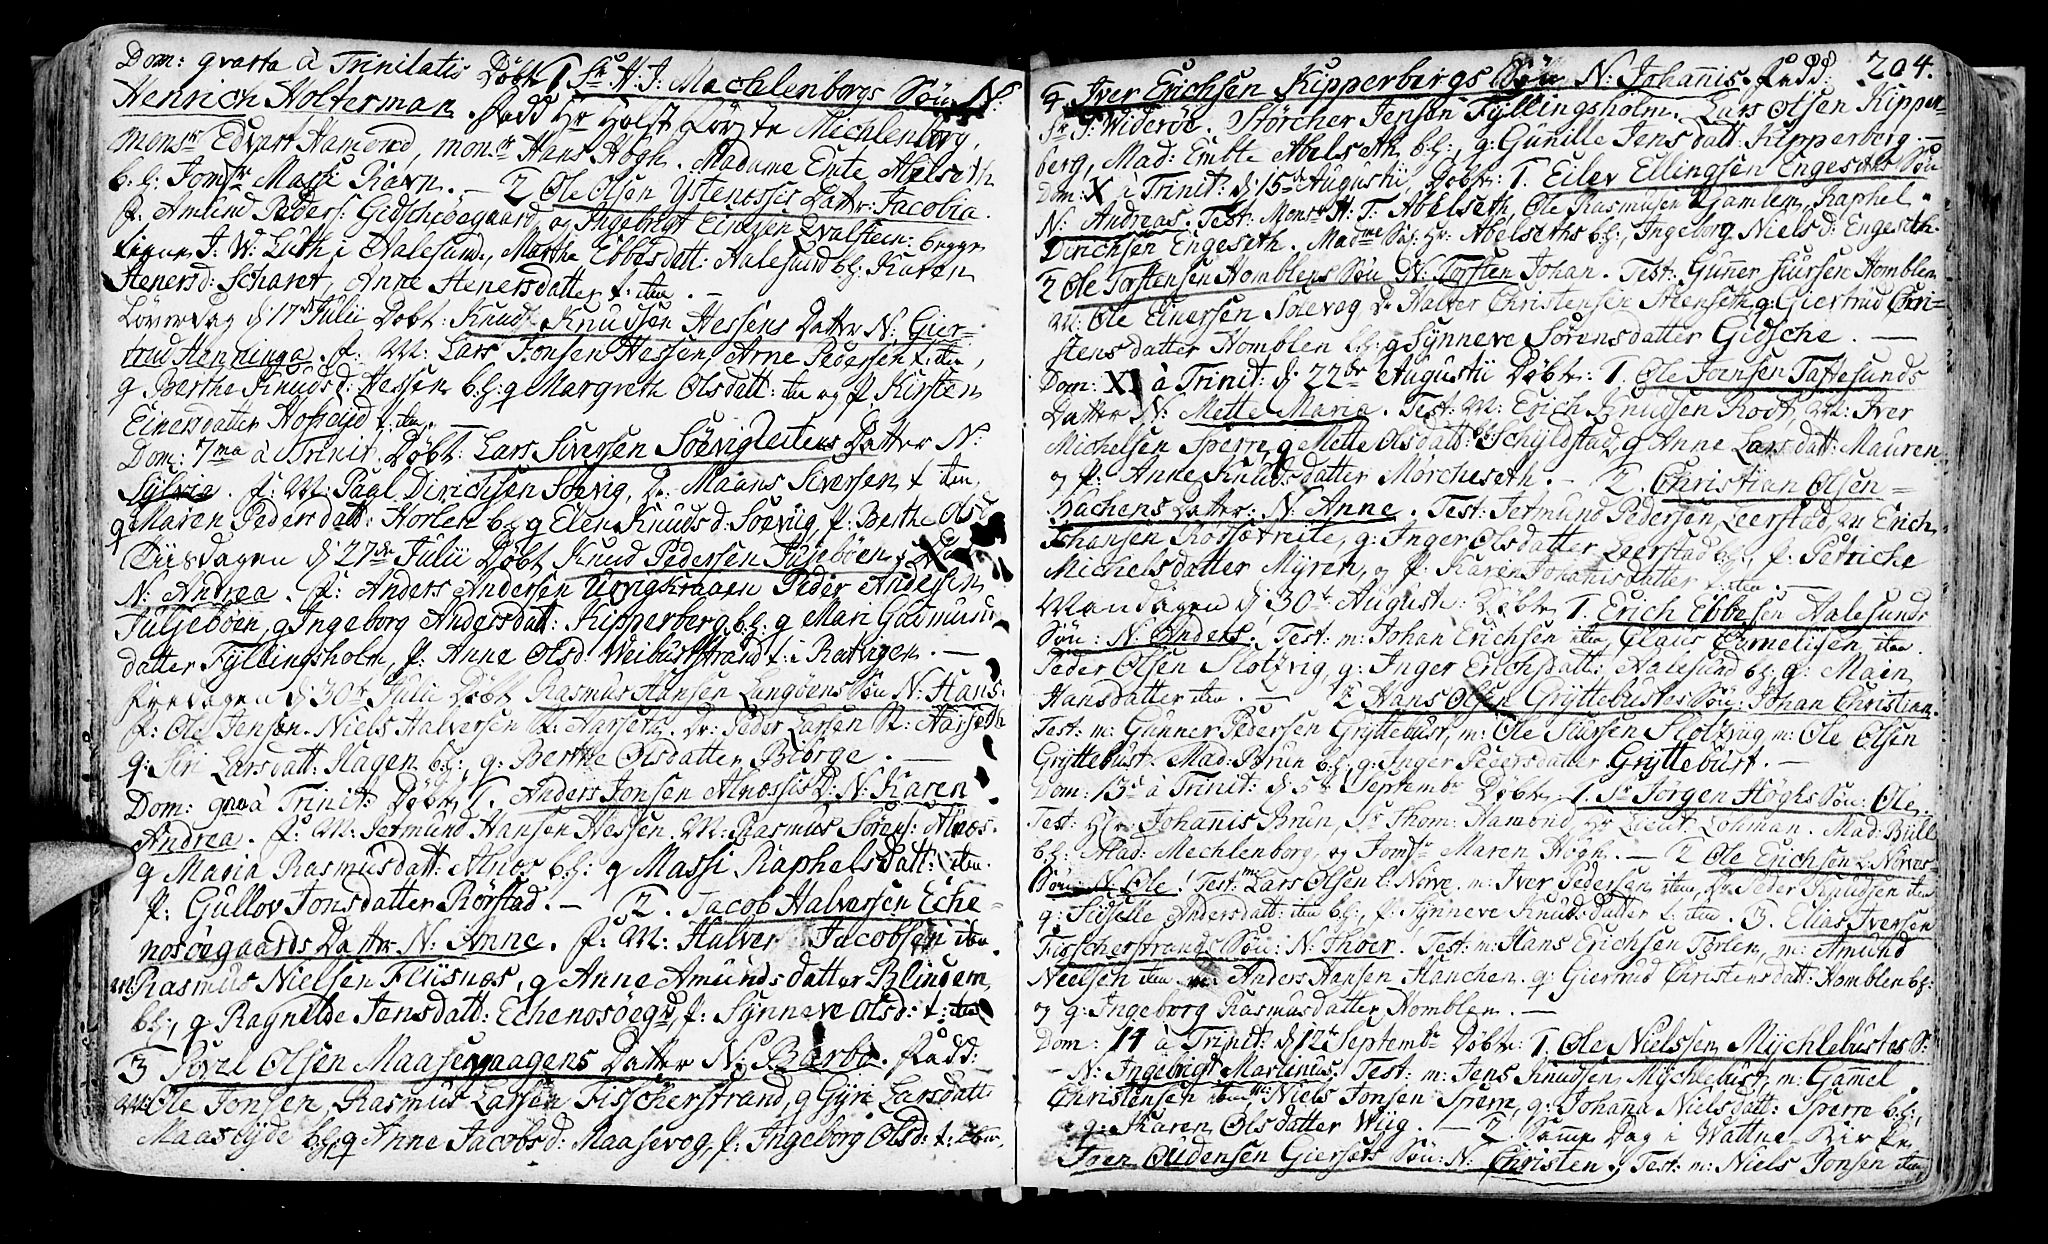 Dom: qvarta à Trinitatis Döbt 1 Sr. H. J: Mechlenborgs Söu N:
Henrich Holterman. Fadd Hr Holst Mechlenborg,
Monsr Edvart Hamond, monsr Hans Högh. Madame Emte Abelseth
b.l: Jomfr Massi Ravn. — 2 Ole Olsen Ystenosses Datter: Jacobia.
f. Amund Peders: Gidschöegaard og Ingebrigt Einesen Qvalstein: begge
J. W: Luth i Aalesund, Marthe Ebbesdatt: Aalesund bl: Karen
Stenersd: Scharet, Anne Stenersdatter t: iten. —
Löverdag d 17d Julii Döbt: Knud Knudsen Hessens Datter N: Gier-
trud Henninga. f: M: Lars Jonsen Hessen, Arne Pedersen t: iten,
q Berthe Knudsd: Hessen bl: q Margreth Olsdatt: iten og p. Kirsten
Einersdatter t: iten. —
Dom: 7ma à Trinit: Döbt: Lars Siversen Söevigleitens Datter N:
Sylvea. f: M: Paal Dirichsen Soevig, Dr: Maans Siversen t iten,
q Maren Pedersdatt: Horlen bl: q Elen Knudsd: Soevig, p: Berthe Olsd
Tiisdagen d 27de Julii Döbt Knud Pedersen Juljeböens
N: Andrea. f: Anders Andersen Urvigkraaen Peder Andersen
Juljeböen, q Ingeborg Andersdatt: Kipperberg bl: q Mari Gudmund
datter Fyllingsholm, p: Anne Olsd: Weibustrand t: i Ratvigen. —
Fredagen d 30te Julii Döbt Rasmus Hansen Langöens Söu N: Hans.
f: Ole Jensen. Niels Halversen Aarseth, Dr: Peder Larsen Aarseth
q: Siri Larsdatt: Hagen bl:, q: Berthe Olsdatter Biorge. —
Dom: 9na à Trinit: Döbt 1. Anders Jonsen Alnossis D: N: Karen
Andrea. f: M: Jetmund Hansen Hessen. M: Rasmus Sörens: Alnæs.
q Maria Rasmusdatt: Alnos bl: q Massi Raphelsdatt: iten.
p: Gullov Jonsdatter Rörstad. — 2. Jacob Halversen Eche-
nosöegaards Datter N: Anne. f: M: Halver Jacobsen iten
m: Rasmus Nielsen Fliisnæs, q Anne Amundsdatter Blindem,
bl:, q Ragnilde Jensdatt: Echenosöegd, p: Synneve Olsd: t: iten
3 Povel Olsen Maasevaagens Datter N: Barbo. Fadd:
m: Ole Jonsen, Rasmus Larsen Fisscherstrand, q Gyri Larsdatt:
Maaslyde bl:, q Anne Jacobsd: Maasevog, p: Ingeborg Olsd: t: iten.
204.
4 Iver Erichsen Kipperbergs Söu N: Johannis. Fadd:
Sr J: Wideröe. Störcher Jensen Fyllingsholm. Lars Olsen Kipper-
berg, Mad: Embte Abelseth bl:, q: Gunille Jensdatt: Kipperberg. —
Dom: X à Trinit: d 15de Augustii, Döbt: 1. Eilev Ellingsen Engeseths Söu
N: Andreas. Test: Monsr H: T: Abelseth, Ole Rasmusen Gamlem, Raphel
Dirichsen Engeseth. Madme Sal: Hr: Abelseths bl:, Ingeborg Nielsd: Engeseth.
2 Ole Torstensen Homblens Söu N: Torsten Johan. Test: Gunner Siursen Homblen,
M: Ole Einersen Solevog, Dr Halter Christensen Stenseth, q: Giertrud Chri-
stensdatter Homblen bl: q Synneve Sörensdatter Gidsche. —
Dom: XI à Trinit: d 22de Augustii Döbt: 1. Ole Joensen Taftesunds
Datter N: Mette Maria. Test: M: Erich Knudsen Root, M: Iver
Michelsen Sperre, q Mette Olsdatt: Schyldstad, q Anne Larsdatt: Mauren
og p: Anne Knudsdatter Morcheseth. — 2. Christian Olsen
Bachens Datter: N: Anne. Test: Jetmund Pedersen Leerstad, m Erich
Johansen Rossetreite, q: Inger Olsdatter Leerstad bl:, p: Petriche
Michelsdatter Myren, og p: Karen Johanisdatter t: iten. —
Mandagen d 30te August: Döbt 1. Erich Ebbesen Aalesunds
Söu: N: Anders. Test: m: Johan Erichsen iten Claus Cornelisen iten.
Peder Olsen Slotzvig, q: Inger Erichsdatt: Aalesund bl: q: Maren
Hansdatter iten. — 2 Hans Olsen Gryttebustes Söu: Johan Christian.
Test: m: Gunner Pedersen Gryttebust, m: Ole Siursen Slotzvig m: Ole Olsen
Gryttebust. Mad: Brun bl:, q: Inger Pedersdatter Gryttebust. —
Dom: 13d à Trinit: d 5te Septembr Döbt 1. Sr Jörgen Höghs Söu: Ole.
Test: Hr Johanis Brun, Sr Thom: Hamond, Hr Lieut: Lohman. Mad: Bull
bl: Mad: Mechlenborg, og Jomfr Maren Högh. — 2 Ole Erichsen l: Nörves
Söu: N Ole. Test: m Lars Olsen l: Nörve. m: Iver Pedersen iten, Dr Peder Knudsen iten
q: Sidselle Andersdatt: iten bl:, p: Synneve Knudsdatter t: iten. 3. Elias Iversen
Fisscherstrands Söu: N: Thoer. Test: m: Hans Erichsen Törlen, m: Amund
Neelsen iten m: Anders Hansen Hanchen. q: Giertrud Christensdatt: Homblen bl:
og q: Ingeborg Rasmusdatter Homblen. —
Dom: 14 à Trinit: d 12te Septembr Döbt: 1 Ole Nielssen Mychlebustes S:
— N: Ingebrigt Martinus. Test: m: Jens Knudsen, Mychlebust, m: Gammel
Christensen iten m: Niels Jonsen Sperre, q: Johanna Nielsdatt: Sperre bl:,
q: Karen Olsdatter Wiig. — 2. Samme Dag i Wattne-Kirke
Joen Oudensen Giersets Söu: N: Christen. Test: m: Niels Jonsen iten,